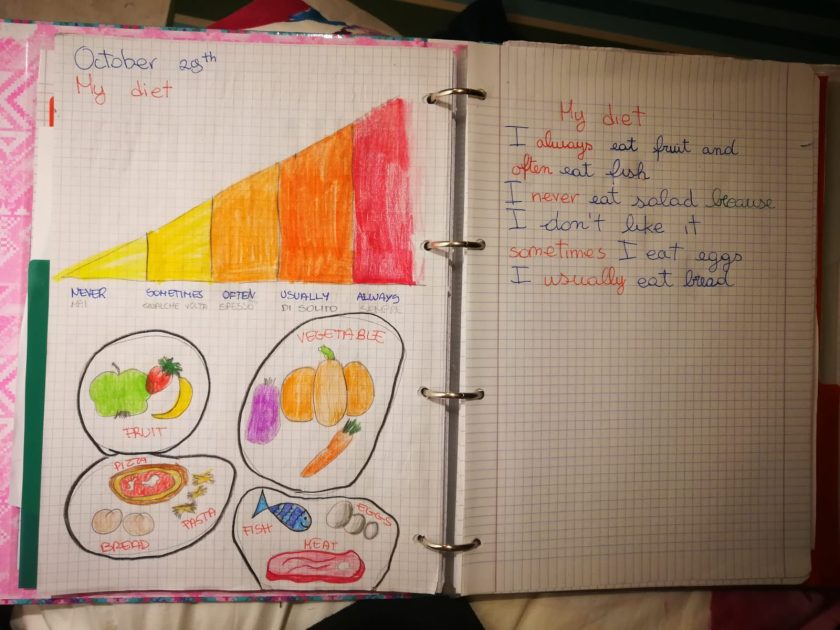 October 29th
My diet
NEVER SOMETIMES OFTEN USUALLY ALWAYS
MAI QUALCHE VOLTA SPESSO DI SOLITO SEMPRE
FRUIT
VEGETABLE
PIZZA
PASTA
BREAD
FISH
EGGS
MEAT
My diet
I always eat fruit and
often eat fish
I never eat salad because
I don't like it
sometimes I eat eggs
I usually eat bread